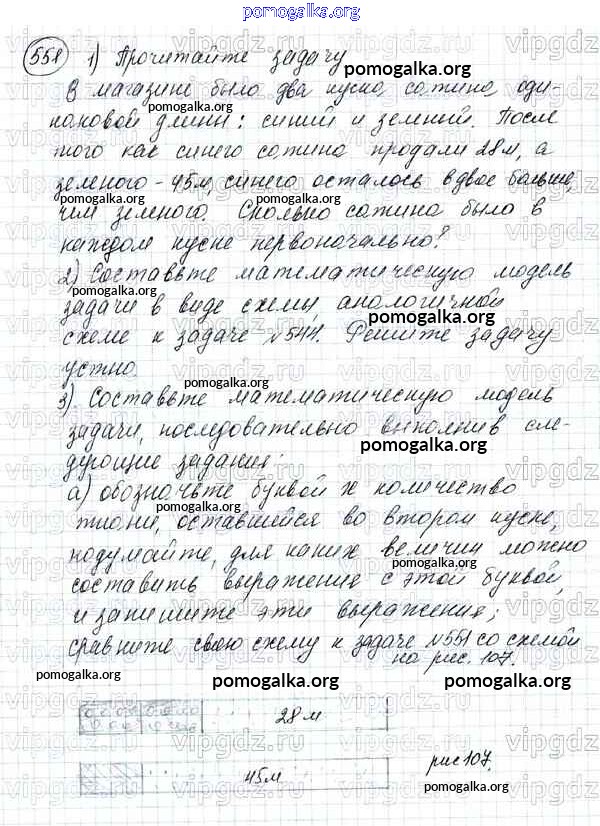 pomogalka.org
558 1) Прочитайте задачу
pomogalka.org
В магазине было два куска сатина оди-
pomogalka.org
наковой длины: синий и зеленый. После
того как синего сатина продали 28м, а
зеленого - 45м, синего осталось вдвое больше,
pomogalka.org
чем зеленого. Сколько сатина было в
каждом куске первоначально?
2) Составьте математическую модель
pomogalka.org
задачи в виде схемы, аналогичной
pomogalka.org
схеме к задаче №544. Решите задачу
устно.
pomogalka.org
3) Составьте математическую модель
задачи, последовательно выполнив сле-
pomogalka.org
дующие задания:
а) обозначьте буквой х количество
pomogalka.org
ткани, оставшейся во втором куске,
подумайте, для каких величин можно
составить выражения с этой буквой,
pomogalka.org
и запишите эти выражения;
сравните свою схему к задаче №551 со схемой
на рис. 107.
pomogalka.org pomogalka.org pomogalka.org
28м
45м
рис 107.
pomogalka.org pomogalka.org